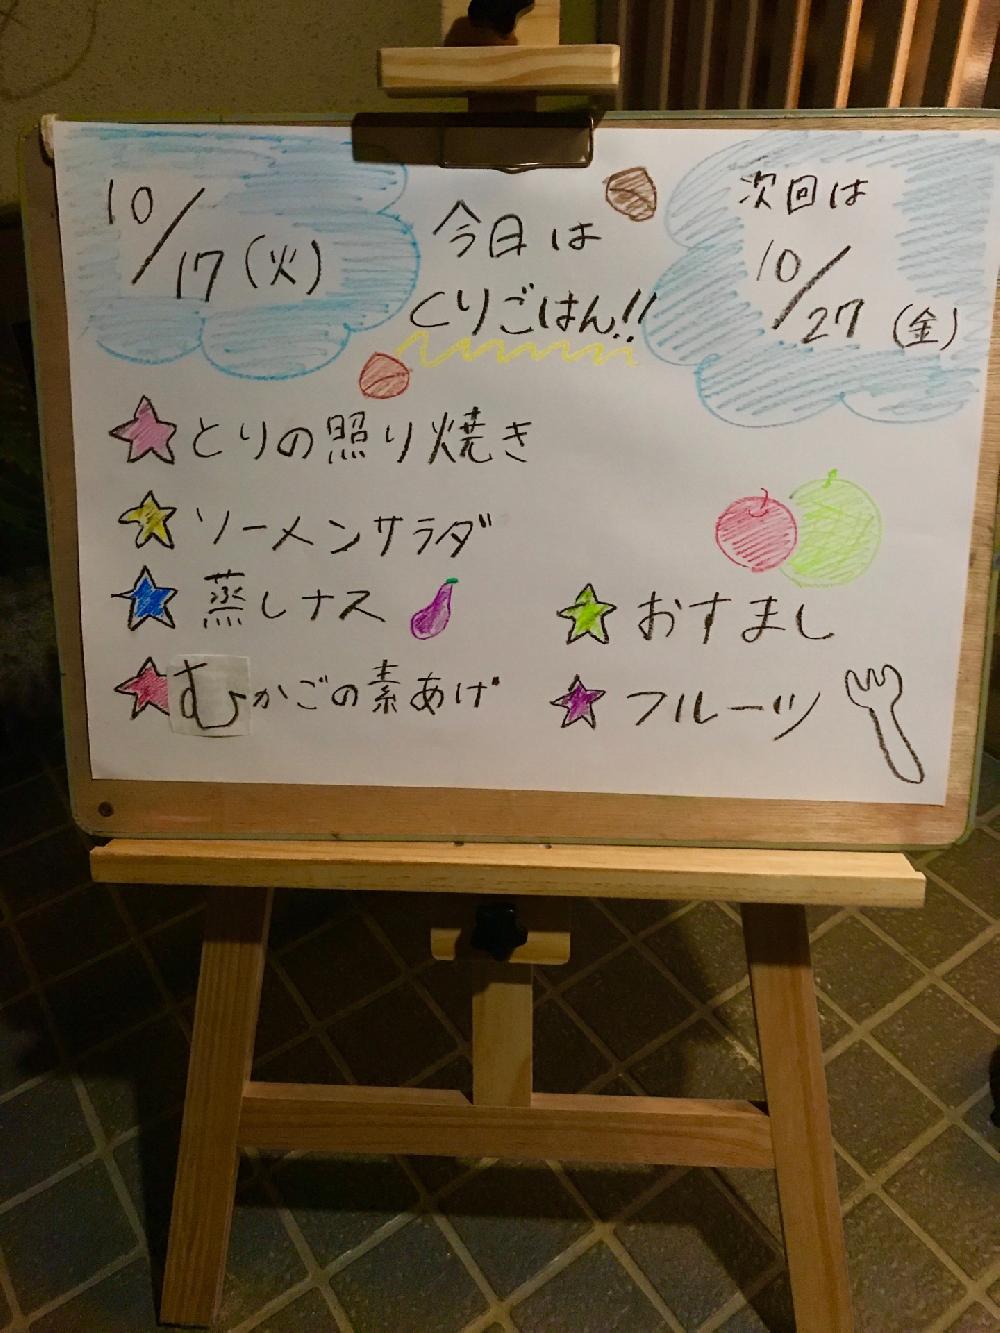 10/17(火)
今日は
とりごはん!!
次回は
10/27(金)
とりの照り焼き
ソーメンサラダ
蒸しナス
むかごの素あげ
おすまし
フルーツ